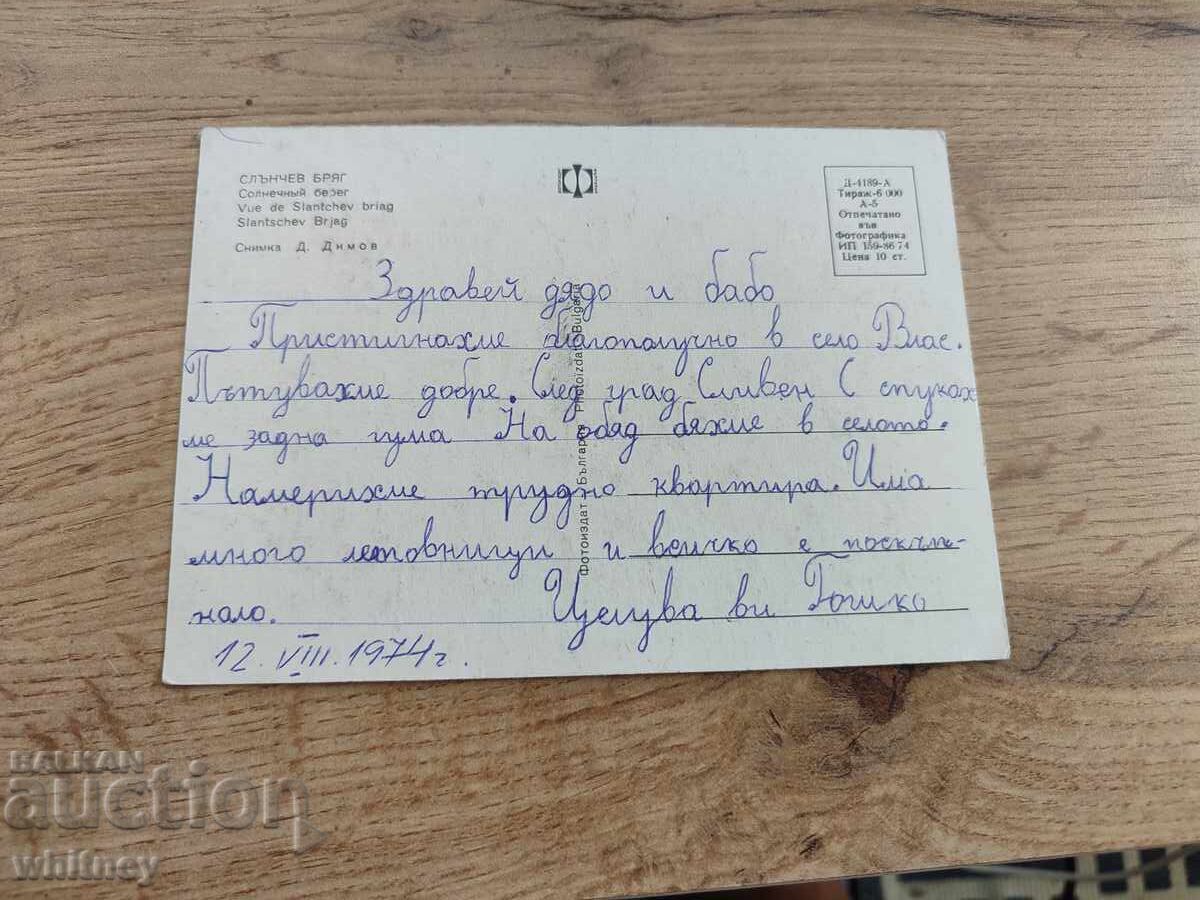 СЛЪНЧЕВ БРЯГ
Солнечный берег
Vue de Slantchev briag
Slantschev Brjag
Снимка Д. Димов
Д-4189-А
Тираж-6 000
А-5
Отпечатано
във
Фотографика
ИП 159-86 74
Цена 10 ст.
Здравей дядо и бабо
Пристигнахме благополучно в село Влас.
Пътувахме добре. След град Сливен С пуках
ме задна гума На обяд бяхме в селото.
Намерихме трудно квартира. Има
много летовници и всичко е поскъп-
нало. Целува ви Гошко
12. VIII. 1974 г.
Фотоиздат България Photoizdat Bulgaria
BALKAN
auction
whitney